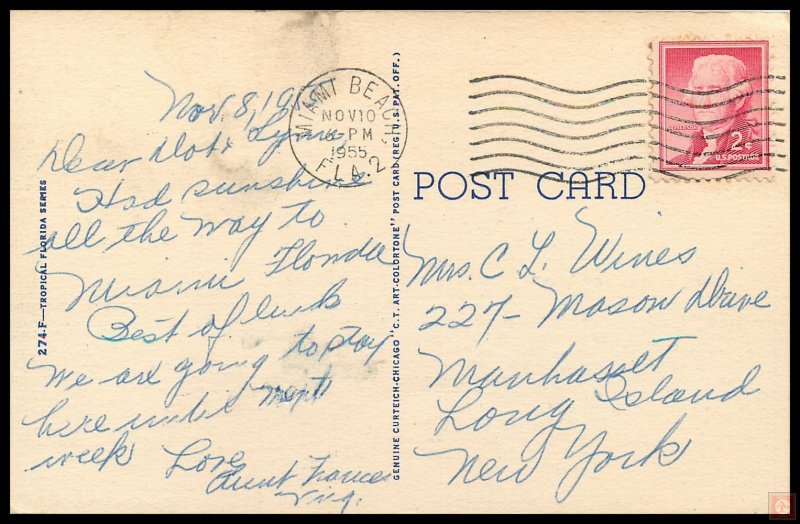 Nov. 8, 19
Dear Dot & Lynn
Had sunshine
all the way to
Miami Florida
Best of luck
We are going to stay
here until next
week Love
Aunt Frances
274.F—TROPICAL FLORIDA SERIES
GENUINE CURTEICH-CHICAGO "C.T. ART-COLORTONE" POST CARD (REG. U.S. PAT. OFF.)
MIAMI BEACH,
NOV 10
PM
1955
FLA. 2
JEFFERSON
2¢
U.S. POSTAGE
POST CARD
Mrs. C L. Wines
227- Mason Drive
Manhasset
Long Island
New York